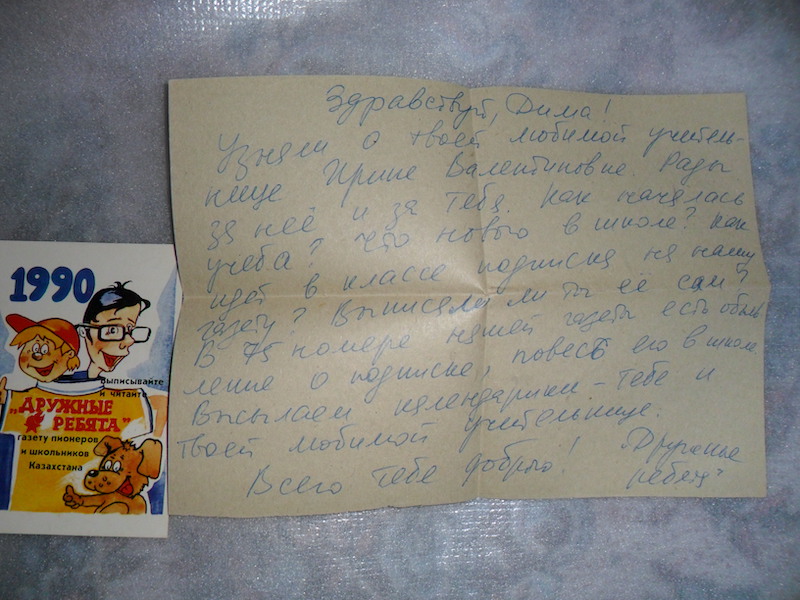 Здравствуй, Дима!
Узнали о твоей любимой учитель-
нице Ирине Валентиновне. Рады
за неё и за тебя. Как началась
учеба? Что нового в школе? Как
идёт в классе подписка на нашу
газету? Выписал ли ты её сам?
В 75 номере нашей газеты есть объяв
ление о подписке, повесь его в школе
Высылаем календарики – тебе и
твоей любимой учительнице.
Всего тебе доброго! „Дружные
ребята"
1990
Выписывайте
и читайте
„ДРУЖНЫЕ
РЕБЯТА"
газету пионеров
и школьников
Казахстана